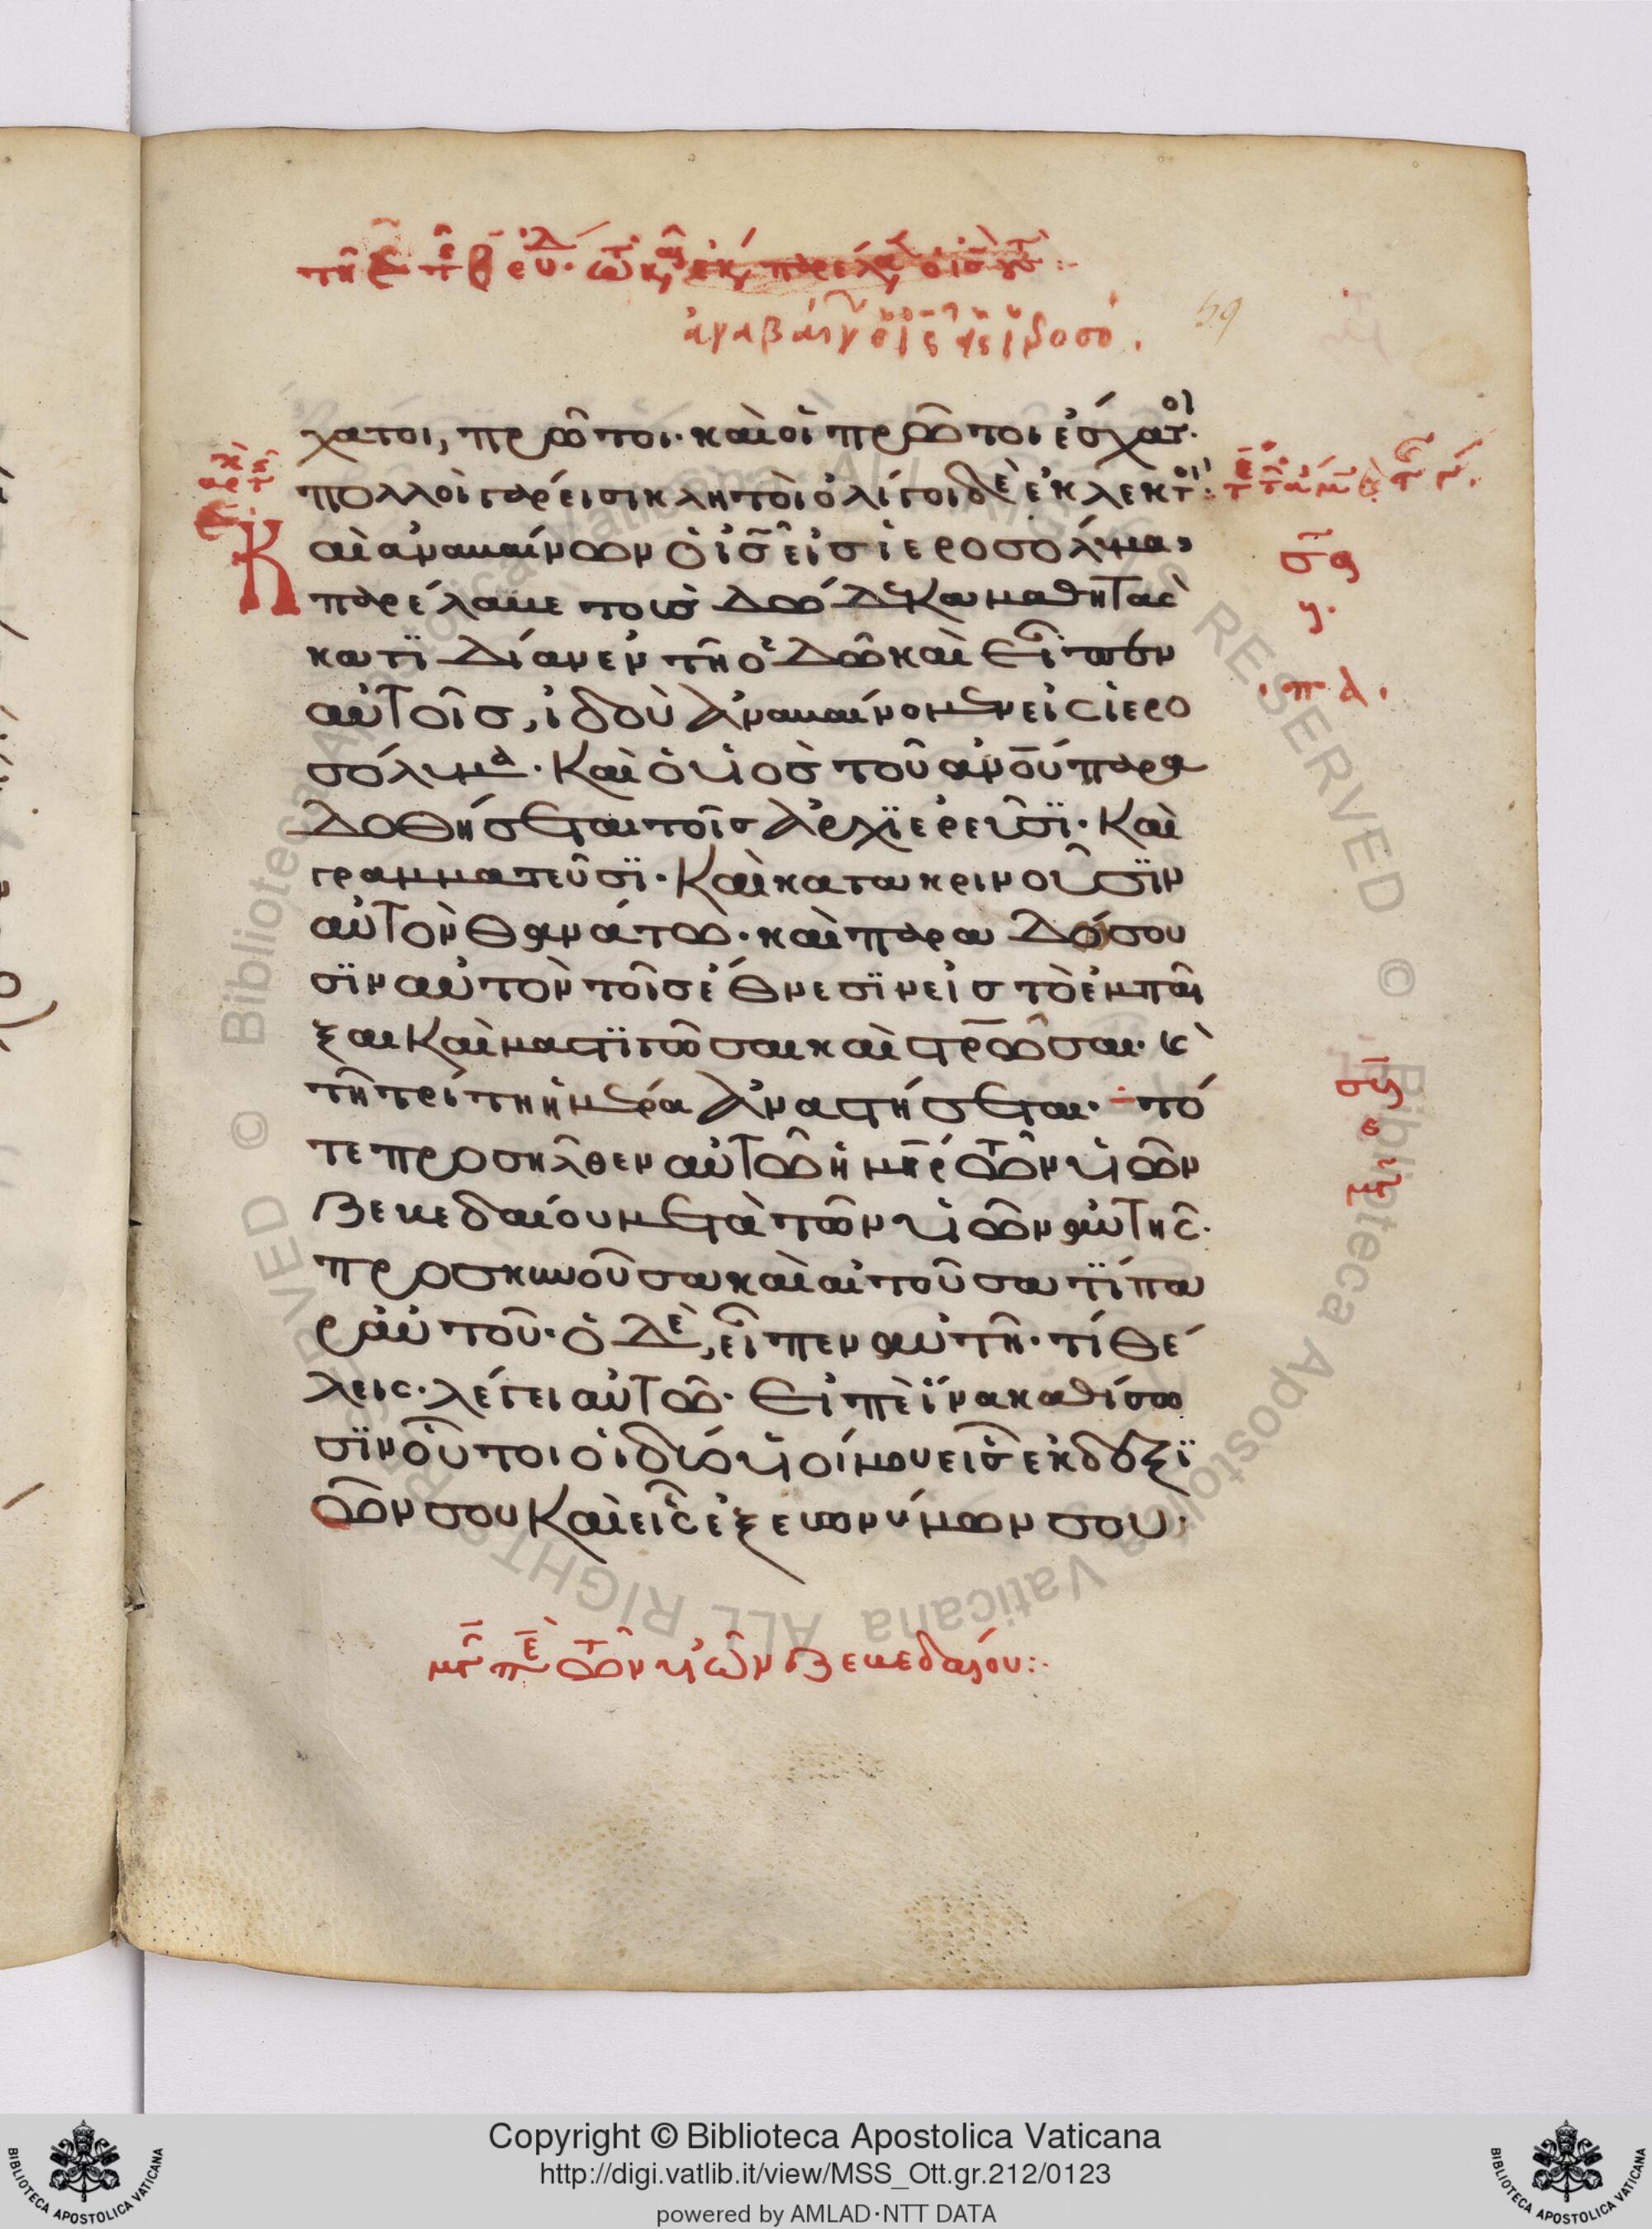 χατοι, πρῶτοι· καὶ οἱ πρῶτοι ἔσχατοι·
πολλοὶ γάρ εἰσι κλητοὶ ὀλίγοι δὲ ἐκλεκτοί:
Καὶ ἀναβαίνων ὁ ις εἰς ἱεροσόλυμα,
παρέλαβε τοὺς δώδεκα μαθητὰς
κατϊδίαν ἐν τῆ ὁδῶ καὶ εἶπεν
αὐτοῖς, ἰδοὺ ἀναβαίνομεν εἰς ἱερο
σόλυμα· Καὶ ὁ υἱὸς τοῦ ανου παρα
δοθήσεται τοῖς ἀρχϊερεῦσϊ· Καὶ
γραμματεῦσϊ· Καὶ κατακρινοῦσϊν
αὐτὸν θανάτω· καὶ παραδώσου
σϊν αὐτὸν τοῖς ἔθνεσϊν εἰς τὸ ἐμπαῖ
ξαι Καὶ μαστϊγῶσαι καὶ στρῶσαι· κ
τῆ τρίτη ἡμέρα ἀναστήσεται· τό
τε προσῆλθεν αὐτῶ ἡ μηρ τῶν υἱῶν
Ζεβεδαίου μετὰ τῶν υἱῶν αὐτῆς·
προσκυνοῦσα καὶ αἰτοῦσα τϊ πα
ρ αὐτοῦ· ὁ δὲ, εἶπεν αὐτῆ· τί θέ
λεις· λέγει αὐτῶ· Εἰπὲ ἵνα καθίσω
σϊν οὗτοι οἱ δύο υἱοί μου εἷς ἐκ δεξϊ
ῶν σου Καὶ εἷς ἐξ εὐωνύμων σου·
τῶν υἱῶν Ζεβεδαίου:
Copyright © Biblioteca Apostolica Vaticana
http://digi.vatlib.it/view/MSS_Ott.gr.212/0123
powered by AMLAD·NTT DATA